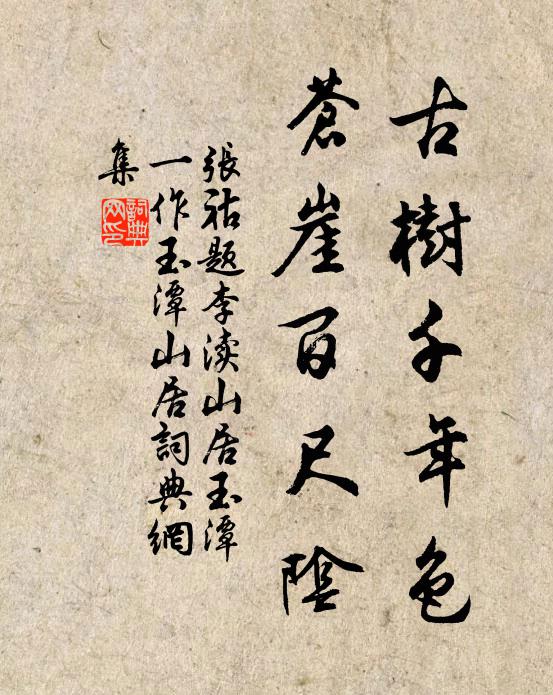 古樹千年色
蒼崖百尺陰
張祜題李瀆山居玉潭
一作玉潭山居詞典網
集
詞典網印